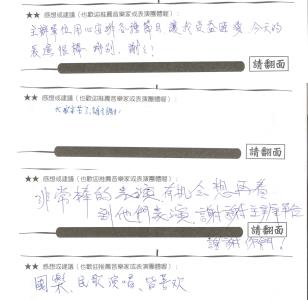 主辦單位用心安排各種節目讓我受益匪淺，今天的
表演很棒,特別,謝謝!
請翻面
★★ 感想或建議（也歡迎推薦音樂家或表演團體喔）：
大家辛苦了,謝謝
請翻面
★★ 感想或建議（也歡迎推薦音樂家或表演團體喔）：
非常棒的表演有機会想再看
到他們表演,謝謝主辦單位
謝謝你們!
請翻面
★★ 感想或建議（也歡迎推薦音樂家或表演團體喔）：
國樂、民歌演唱、皆喜欢